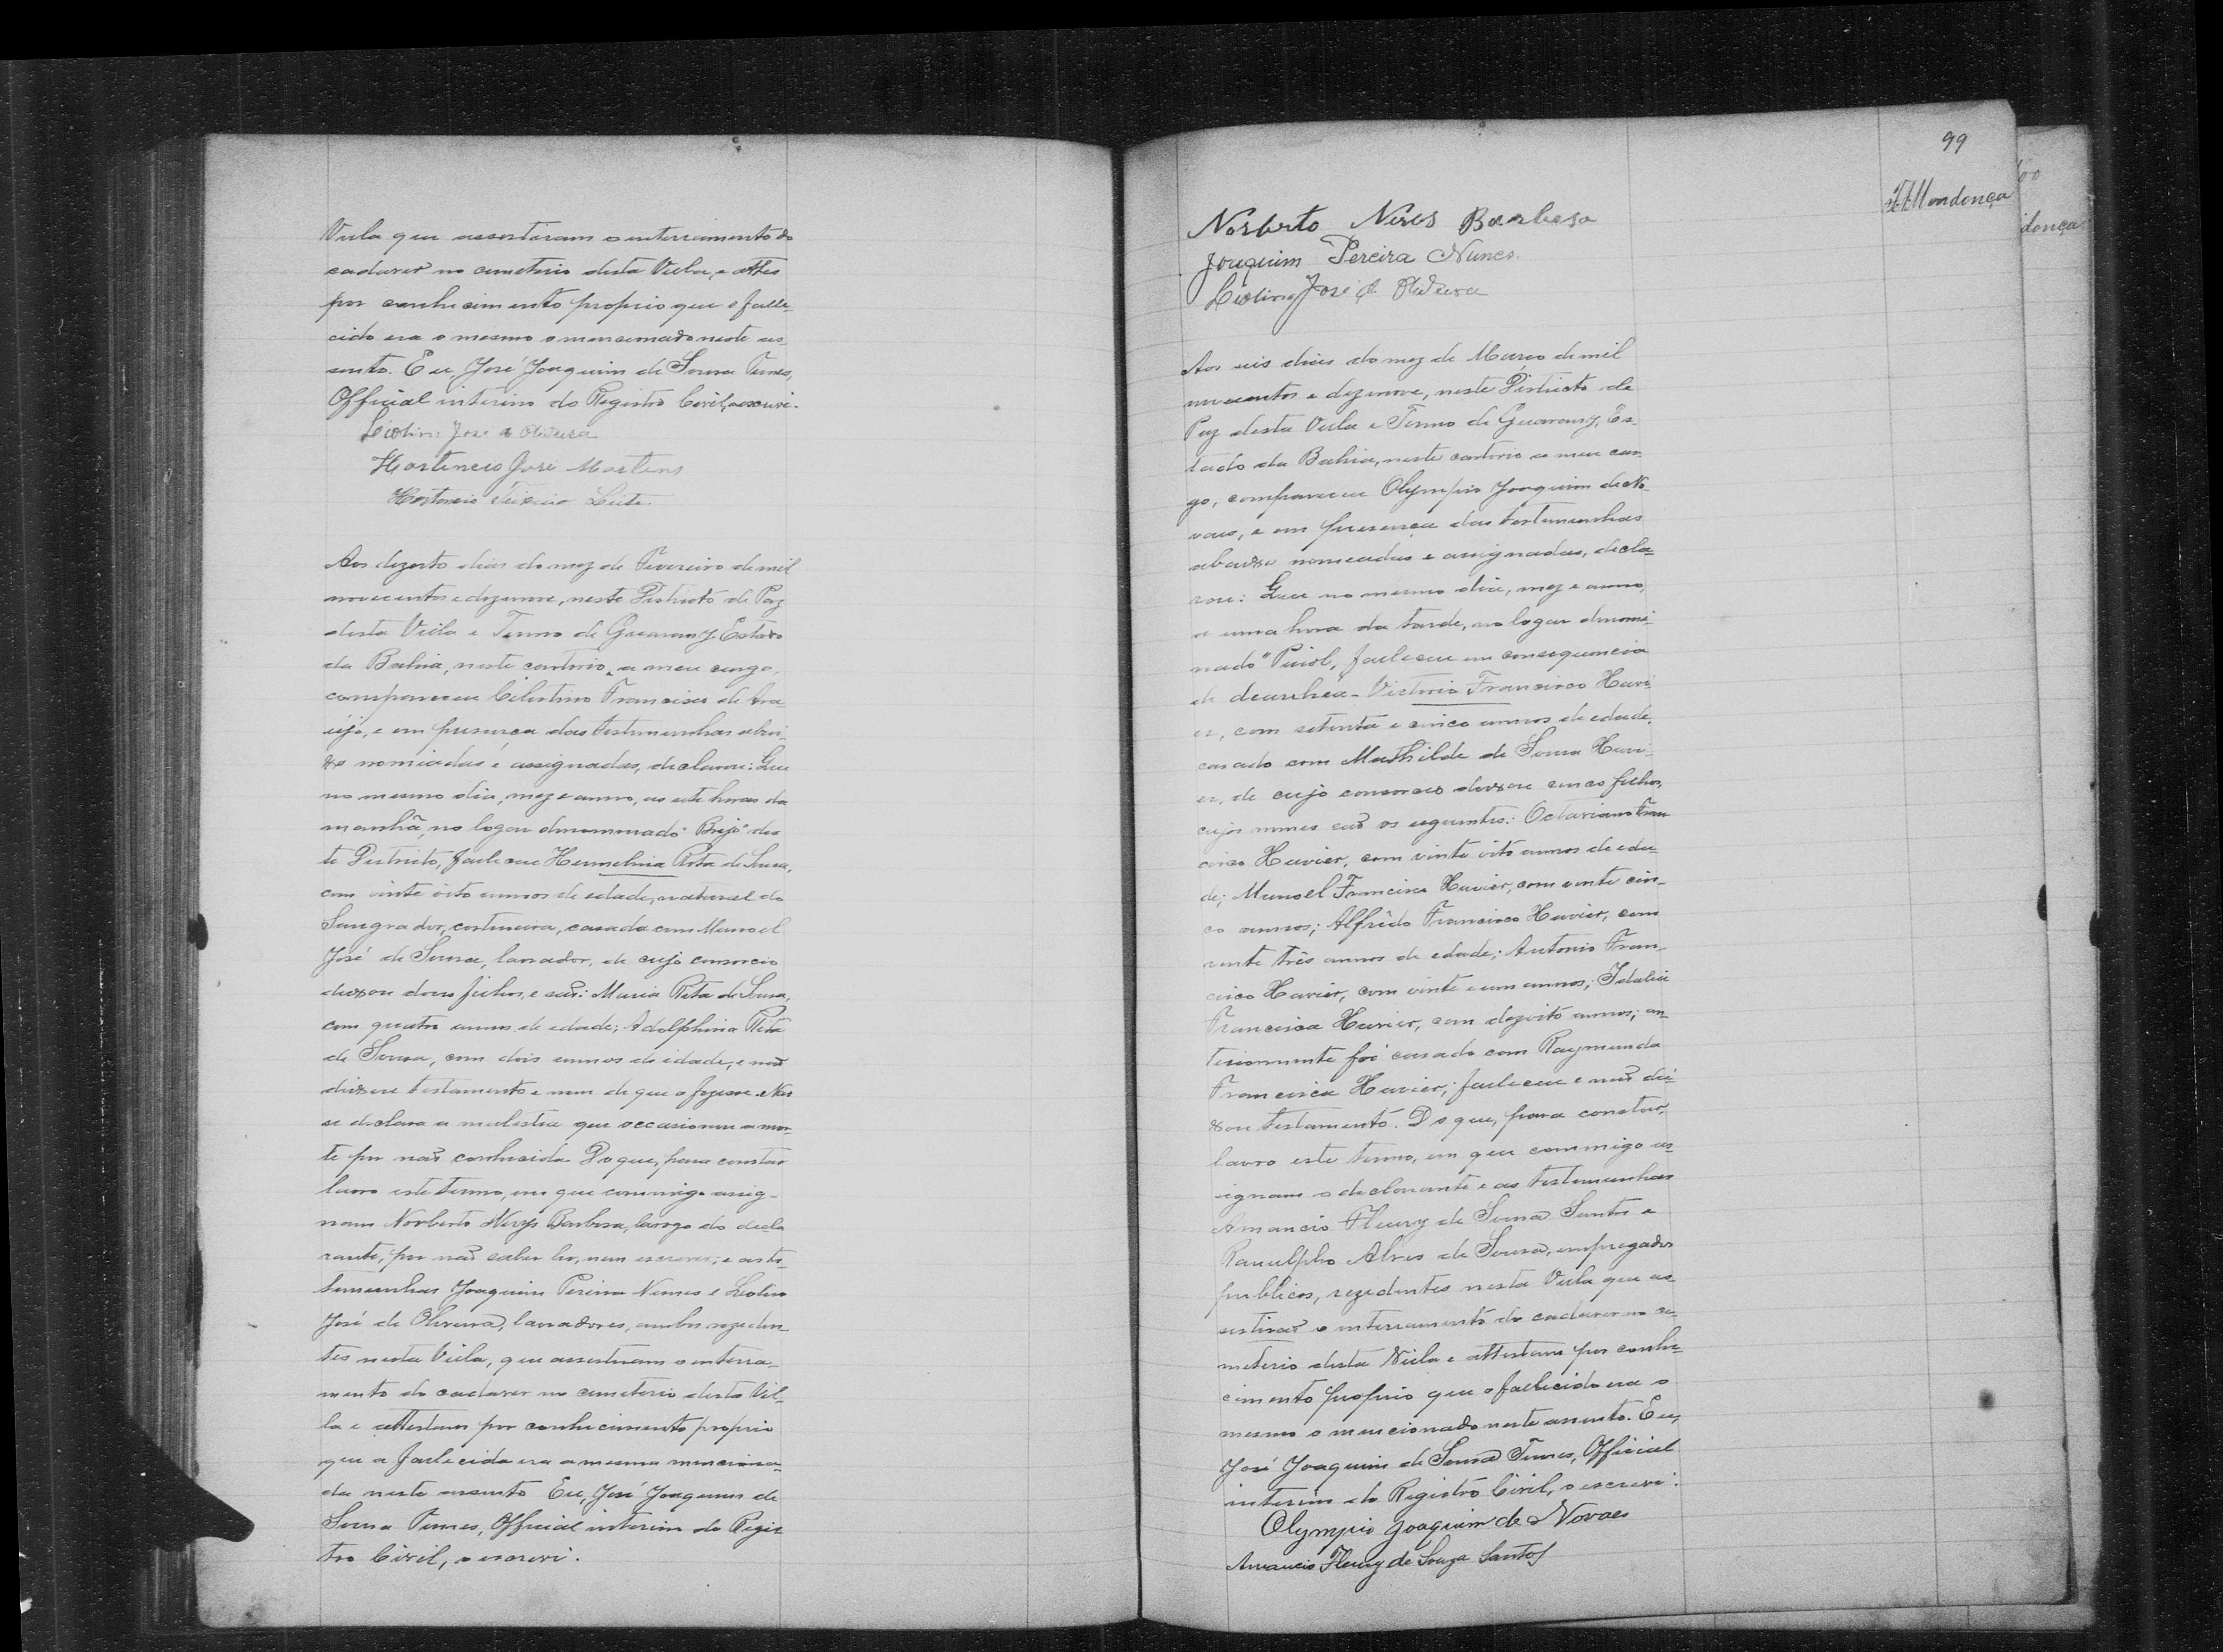 Villa que assestiram o enterramento do
cadaver no cemeterio desta Villa, e attes
por conhecimento proprio que o falle-
cido era o mesmo o mencionado neste as-
sento. Eu, José Joaquim de Sousa Tunes,
Official interino do Registro Civil, o escrevi.
Liolino José de Oliveira
Hortencio José Martins
Hortencio Teixeira Leite.
Aos dezoito dias do mez de Fevereiro de mil
novecentos e dezenove, neste Districto de Paz
desta Villa e Termo de Guarany, Estado
da Bahia, neste cartorio, a meu cargo,
compareceu Celestino Francisco de Ara-
ujo, e em presença das testemunhas abai-
xo nomiadas e assignadas, declarou: Que
no mesmo dia, mez e anno, as sete horas da
manhã, no logar denominado "Brejo" des-
te Districto, falleceu Hermelina Rita de Sousa,
com vinte oito annos de edade, natural do
Sangrador, costureira, casada com Manoel
José de Sousa, lavrador, de cujo consorcio
deixou dous filhos, e são: Maria Rita de Sousa,
com quatro annos de edade; Adolphina Rita
de Sousa, com dois annos de idade, e não
deixou testamento e nem de que o fizesse. Não
se declara a molestia que occasionou a mor-
te por não conhecida. Do que, para constar
lavro este termo, em que commigo assig-
nam Norberto Nerys Barbosa, a rogo do decla
rante, por não saber ler, nem escrever, e as te-
temunhas Joaquim Pereira Nunes e Liolino
José de Oliveira, lavradores, ambos rezeden
tes nesta Villa, que assestiram o enterra-
mento do cadaver no cemeterio desta Vil-
la e attestam por conhecimento proprio
que a fallecida era a mesma menciona-
da neste assento. Eu, José Joaquim de
Sousa Tunes, Official interino do Regis
tro Civil, o escrevi.
99
Mendonça
Norberto Neres Barbosa
Joaquim Pereira Nunes.
Liolino José de Oliveira
Aos seis dias do mez de Março de mil
novecentos e dezenove, neste Districto de
Paz desta Villa e Termo de Guarany, Es-
tado da Bahia, neste cartorio a meu car-
go, compareceu Olympio Joaquim de No-
vaes, e em presença das testemunhas
abaixo nomeadas e assignadas, decla-
rou: Que no mesmo dia, mez e anno,
a uma hora da tarde, no logar denomi-
nado" falleceu em consequencia
de dearrhea - Victorio Francisco Havi-
er, com setenta e cinco annos de edade,
casado com Mathilde de Sousa Havi-
er, de cujo consorcio deixou cinco filhos,
cujos nomes são os seguintes: Octaviano Fran
cisco Havier, com vinte oito annos de eda-
de; Manoel Francisco Havier, com vinte cin-
co annos; Alfrêdo Francisco Havier, com
vinte três annos de edade; Antonio Fran-
cisco Havier, com vinte e um annos; Idalia
Francisca Havier, com dezoito annos; an-
teriormente foi casado com Raymunda
Francisca Havier; falleceu e não dei-
xou testamento. Do que, para constar,
lavro este termo, em que commigo as-
signam o declarante e as testemunhas
Amancio Fleury de Sousa Santos e
Ranulpho Alves de Sousa, empregados
publicos, rezedentes nesta Villa que as-
sestirão o enterramento do cadaver no ce-
meterio desta Villa e attestam por conhe-
cimento proprio que o fallecido era o
mesmo o mencionado neste assento. Eu,
José Joaquim de Sousa Tunes, Official
interino do Registro Civil, o escrevi.
Olympio Joaquim de Novaes
Amancio Fleury de Souza Santos
donça